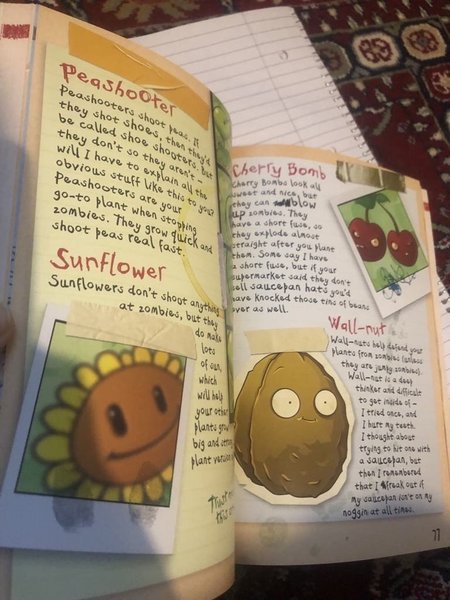 Peashooter
Peashooters shoot peas. If
they shot shoes, then they'd
be called shoe shooters. But
they don't so they aren't -
will I have to explain all the
obvious stuff like this to you?
Peashooters are your
go-to plant when stopping
zombies. They grow quick and
shoot peas real fast.
Sunflower
Sunflowers don't shoot anything
at zombies, but they
do make
lots
of sun,
which
will help
your other
plants grow
big and
plant
Trust
this
Cherry Bomb
Cherry Bombs look all
sweet and nice, but
they can blow
up zombies. They
have a short fuse, so
they explode almost
straight after you plant
them. Some say I have
a short fuse, but if your
supermarket said they don't
sell saucepan hats you'd
have knocked those tins of beans
over as well.
Wall-nut
Wall-nuts help defend your
plants from zombies (unless
they are jumpy zombies).
Wall-nut is a deep
thinker and difficult
to get inside of -
I tried once, and
I hurt my teeth.
I thought about
trying to hit one
with a saucepan, but
then I remembered
that I freak out if
my saucepan isn't on my
noggin at all times.
77